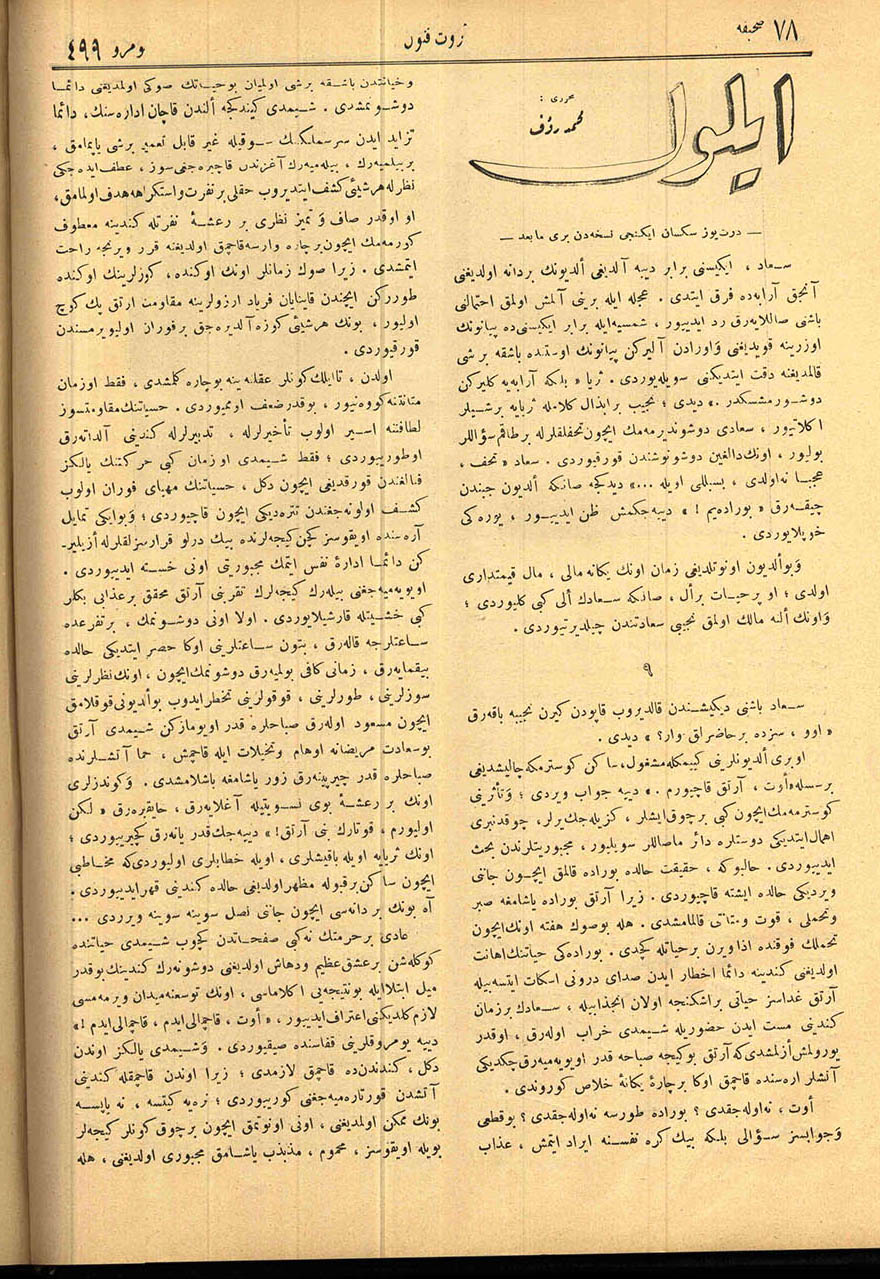 صحیفه ٧٨
ثروت فنون
نومرو ٤٩٩
ایلول
محرری :
محمد رؤف
— درت‌یوز سكسان ایكنجی نسخه‌دن بری مابعد —
سـعاد ، ایكیسنی برابر دییه آلدیغی ألدیونك بردانه اولدیغنی
آنجق آرابه‌ده فرق ایتدی . عجله ایله برینی آلمش اولمق احتمالنی
باشنی صاللایه‌رق رد ایدییور ، شمسیه‌ایله برابر ایكیسنی‌ده پیانونك
اوزرینه قویدیغنی وَاورادن آلیركن پیانونك اوستنده باشقه برشی
قالمدیغنه دقت ایتدیكنی سویله‌یوردی . ثریا « بلكه آرابه‌یه كلیركن
دوشورمشسكدر . » دیدی ؛ نجیب برابذال كلامله ثریایه برشیلر
اكلاتیور ، سعادی دوشوندیرمه‌مك ایچون تحفلقلرله برطاقم سؤاللر
بولیور ، اونك‌دالغین دوشونوشندن قورقیوردی . سعاد « تحف ،
عجبـا نه‌اولدی ، بسبللی اویله ...» دیدكجه صانكه ألدیون جیبندن
چیقـه‌رق « بوراده‌یم ! » دییه‌جكمش ظن ایدییـور ، یوره‌كی
خوپلایوردی .
وَبوألدیون اونوتلدیغی زمان اونك یكانه مالی ، مال قیمتداری
اولدی ؛ او پرحیـات برأل ، صانكه سـعادك ألی كبی كلیوردی ؛
وَاونك ألنه مالك اولمق نجیبی سعادتندن چیلدیرتیوردی .
٩
سـعاد باشنی دیكیشـندن قالدیروب قاپودن كیرن نجیبه باقه‌رق
« اوو ، سزده برحاضرلق وار؟ » دیدی .
اوبری ألدیونلرینی كییمكله مشغول ، ساكن كوسترمكه چالیشدیغی
برسسله «أوت ، آرتق قاچیورم . » دییه جواب ویردی ؛ وَتأثرینی
كوسترمه‌مك‌ایچون كبی برچوق‌ایشلر ، كزیله‌جك‌یرلر ، چوقدنبری
اهمال‌ایتدیكی دوستلره دائر ماصاللر سویلیور ، مجبوریتلرندن بحث
ایدییوردی . حالبوكه ، حقیقت حالده بوراده قالمق ایچـون جاننی
ویردیكی حالده ایشته قاچیوردی . زیرا آرتق بوراده یاشامغه صبر
وتحملی ، قوت ومتانتی قالمامشدی . هله بوصوك هفته اونك‌ایچون
تحملك فوقنده اذاویرن برحیاتله كچدی . بوراده‌كی حیاتنك‌اهانت
اولدیغنی كندینه دائما اخطار ایدن صدای درونی اسكات ایتسه‌بیله
آرتق غداسز حیاتی براشكنجه اولان انجذابیله ، سـعادك برزمان
كندینی مست ایدن حضوریله شـیمدی خراب اوله‌رق ، اوقدر
یورولمش‌أزلمشدی‌كه آرتق بوكیجه صباحه قدر اویویه‌میه‌رق‌چكدیكی
آتشلر اره‌سنده قاچمق اوكا برچارهٔ یكانهٔ خلاص كوروندی .
أوت ، نه‌اوله‌جقدی؟ بوراده طورسه نه‌اوله‌جقدی؟ بوقطعی
وَجوابسز سـؤالی بلكه بیك كره نفسـنه ایراد ایتمش ، عذاب
وخیانتدن باشـقه برشی اولمیان بوحیـاتك صوكی اولمدیغنی دائمـا
دوشـونمشدی . شـیمدی كیتدكجه ألندن قاچان اداره‌سنك، دائما
تزاید ایدن سرسملكـنك ســوقیله غیر قابل تعمیر برشی یاپمامق ،
بریبیلمیه‌رك ، بیله‌میه‌رك آغزندن قاچیره‌جغی سوز ، عطف ایده‌جكی
نظرله هرشیئی كشف ایتدیروب حقلی برنفرت واستكراهه هدف اولمامق،
او اوقدر صاف وَ تمیز نظری بر رعشـهٔ نفرتله كندینه معطوف
كورمه‌مك ایچون برچاره وارسه قاچمق اولدیغنه قرار ویرنجه راحت
ایتمشدی . زیرا صوك زمانلر اونك اوكنده، كوزلرینك اوكنده
طوررركن ایچندن قاینایان فریاد آرزولرینه مقاومت آرتق پك كوچ
اولیور ، بونك هرشیئی كوزه آلدیره‌جق برفوران اولیویرمسندن
قورقیوردی .
اولدن ، تاایلك كونلر عقلنه ینه بوچاره كلمشدی ، فقط اوزمان
متانتنه كووه‌نیور ، بوقدرضعف اوممیوردی . حسیاتنك مقاومتسوز
لطافتنه اسـیر اولوب تأخیرلرله ، تدبیرلرله كندینی آلداته‌رق
اوطوریوردی ؛ فقط شیمدی اوزمان كبی حركتنك یالكز
فنالغندن قورقدیغی ایچون دكل ، حسیاتنك مهیای فوران اولوب
كشـف اولونه‌جغندن تتره‌دیكی ایچون قاچیوردی ؛ وَبوایكی تمایل
آره‌سنده اویقوسز كچن‌كیجه‌لرنده بیك درلو قرارسزلقلرله أزیلیر-
كن دائمـا ادارهٔ نفس ایتمك مجبوریتی اونی خسـته ایدییوردی .
اویویه‌میه‌جغنی بیله‌رك كیجه‌لرك تقربنی آرتق محقق برعذابی بكلر
كبی خشـیتله قارشیلایوردی . اولا اونی دوشـونمك ، برتفرعده
سـاعتلرجه قاله‌رق ، بتون سـاعتلرینی اوكا حصر ایتدیكی حالده
بیقمایه‌رق ، زمانی كافی بولمیه‌رق دوشونمك‌ایچون ، اونك‌نظرلرینی
سوزلرینی ، طورلرینی ، قوقولرینی تخطر ایدوب بوألدیونی‌قوقلامق
ایچون مسعود اوله‌رق صباحلره قدر اویومازكن شـیمدی آرتق
بوسعادت مریضانه اوهام وتخیلات ایله قاچمش ، حما آتشـلرنده
صباحلره قدر چیرپینه‌رق زور یاشامغه باشلامشدی . وَكوندزلری
اونك بر رعشـهٔ بوی نسـویتیله آغلایه‌رق ، حایقیره‌رق « لكن
اولیورم ، قوتارك بنی آرتق! » دییه‌جك‌قدر یانه‌رق كچیرییوردی ؛
اونك ثریایه اویله باقیشلری ، اویله خطابلری اولیوردی‌كه مخـاطبی
ایچون ساكن برقبوله مظهر اولدیغی حالده كندینی قهرایدییوردی .
آه بونك بردانه‌سی ایچون جاننی نصل سوینه سوینه ویرردی ...
عادی برحرمتك نه‌كبی صفحـاتدن كچوب شـیمدی حیاتنده
كوكله‌شن برعشق‌عظیم ودهاش اولدیغنی دوشونه‌رك كندینك‌بوقدر
میل ابتلاایله بونتیجه‌یی اكلاماسی ، اونك توسعنه‌میدان ویرمه‌مسی
لازم كلدیكنی‌اعتراف‌ایدییور ، « أوت ، قاچمالی‌ایدم ، قاچمالی‌ایدم ! »
دییه یومروقلرینی قفاسنده صیقیوردی . وَشـیمدی یالكز اوندن
دكل ، كندندن‌ده قاچمق لازمدی ؛ زیرا اوندن قاچمقله كندینی
آتشدن قورتاره‌میه‌جغنی كورییوردی ؛ نره‌یه كیتسه ، نه یاپسـه
بونك ممكن اولمدیغنی ، اونی اونوتمق ایچون برچوق كونلر كیجه‌لر
بویله اویقوسـز ، محموم ، مذبذب یاشـامق مجبوری اولدیغنی ، هله